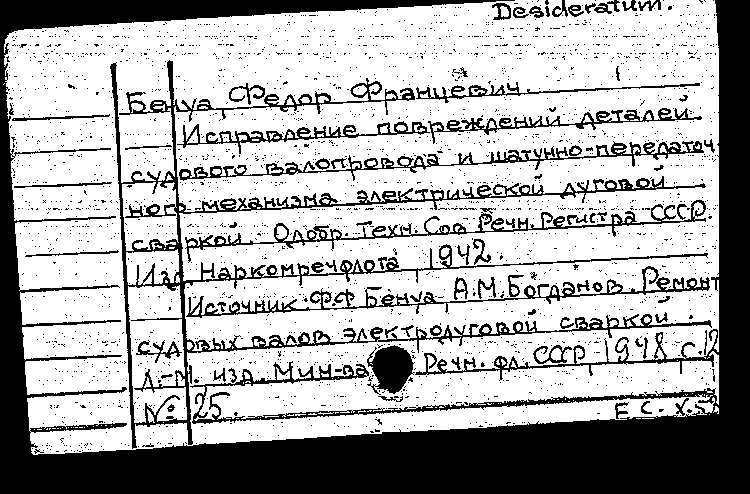 Desideratum.
Бенуа, Федор Францевич.
Исправление повреждений деталей
судового валопровода и шатунно-передаточ
ного механизма электрической дуговой
сваркой. Одобр. Техн. Сов Речн. Регистра СССР.
Изд Наркомречфлота, 1942.
Источник: Ф.Ф Бенуа, А.М. Богданов. Ремонт
судовых валов электродуговой сваркой.
Л.-М. изд. Мин-ва Речн. фл. СССР 1948, с. 12
№ 25.
Е С. X.52